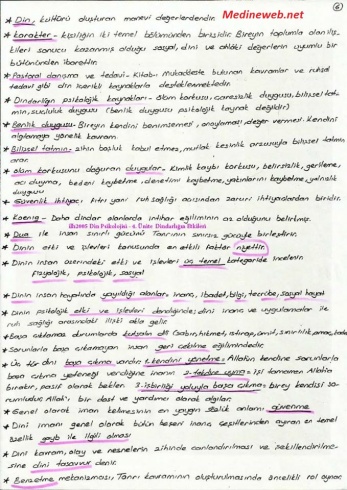 Medineweb.net
6
* Din, kültürü oluşturan manevi değerlerdendir.
* karakter - kişiliğin iki temel bölümünden birisidir. Bireyin toplumla olan iliş-
kileri sonucu kazanmış olduğu sosyal, dini ve ahlaki değerlerin uyumlu bir
bütününden ibarettir.
* Pastoral danışma ve tedavi - Kitab-ı Mukaddeste bulunan kavramlar ve ruhsal
tedavi gibi din içerikli kaynaklarla desteklenmektedir.
* Dindarlığın psikolojik kaynakları - ölüm korkusu, çaresizlik duygusu, bilişsel tat-
min, suçluluk duygusu (benlik duygusu psikolojik kaynak değildir)
* Benlik duygusu - Bireyin kendini benimsemesi, onaylaması, değer vermesi. Kendini
algılamaya yönelik kavram.
* Bilişsel tatmin - zihin boşluk kabul etmez, mutlak kesinlik arzusuyla bilişsel tatmin
arar.
* ölüm korkusunu doğuran duygular - Kimlik kaybı korkusu, belirsizlik, gerileme,
acı duyma, bedeni kaybetme, denetimi kaybetme, yakınlarını kaybetme, yalnızlık
duygusu
* Güvenlik ihtiyacı - fıtri yani ruh sağlığı açısından zaruri ihtiyaçlardan biridir.
* Koenig - Daha dindar olanlarda intihar eğiliminin az olduğunu belirtmiş.
ilh2005 Din Psikolojisi - 4. Ünite Dindarlığın Etkileri
* Dua ile insan sınırlı gücünü Tanrının sınırsız gücüyle birleştirir.
* Dinin etki ve işlevleri konusunda en etkili faktör niyettir.
* Dinin insan üzerindeki etki ve işlevleri üç temel kategoride incelenir
fizyolojik, psikolojik, sosyal
* Dinin insan hayatında yayıldığı alanlar, inanç, ibadet, bilgi, tecrübe, sosyal hayat
* Dinin psikolojik etki ve işlevleri dendiğinde; dini inanç ve uygulamalar ile
ruh sağlığı arasındaki ilişki akla gelir.
* Sorunlarla başa çıkamayan insan geri çekilme eğilimindedir.
* Üç tür dini başa çıkma vardır 1. kendini yönetme = Allah'ın kendine sorunlarla
başa çıkma yeteneği verdiğine inanır. 2- takdire uyma = işi tamamen Allah'a
bırakır, pasif olarak bekler. 3. işbirliği yoluyla başa çıkma = birey kendisi so-
rumludur. Allah'ı bir dost ve yardımcı olarak algılar.
* Genel olarak iman kelimesinin en yaygın sözlük anlamı güvenme
* Dini imanı genel olarak bütün beşeri inanç çeşitlerinden ayıran en temel
özellik gayb ile ilgili olması
* Dini kavram, olay ve nesnelerin zihinde canlandırılması ve şekillendirilme-
sine dini tasavvur denir.
* Benzetme mekanizması, Tanrı kavramının oluşturulmasında öncelikli rol oynar